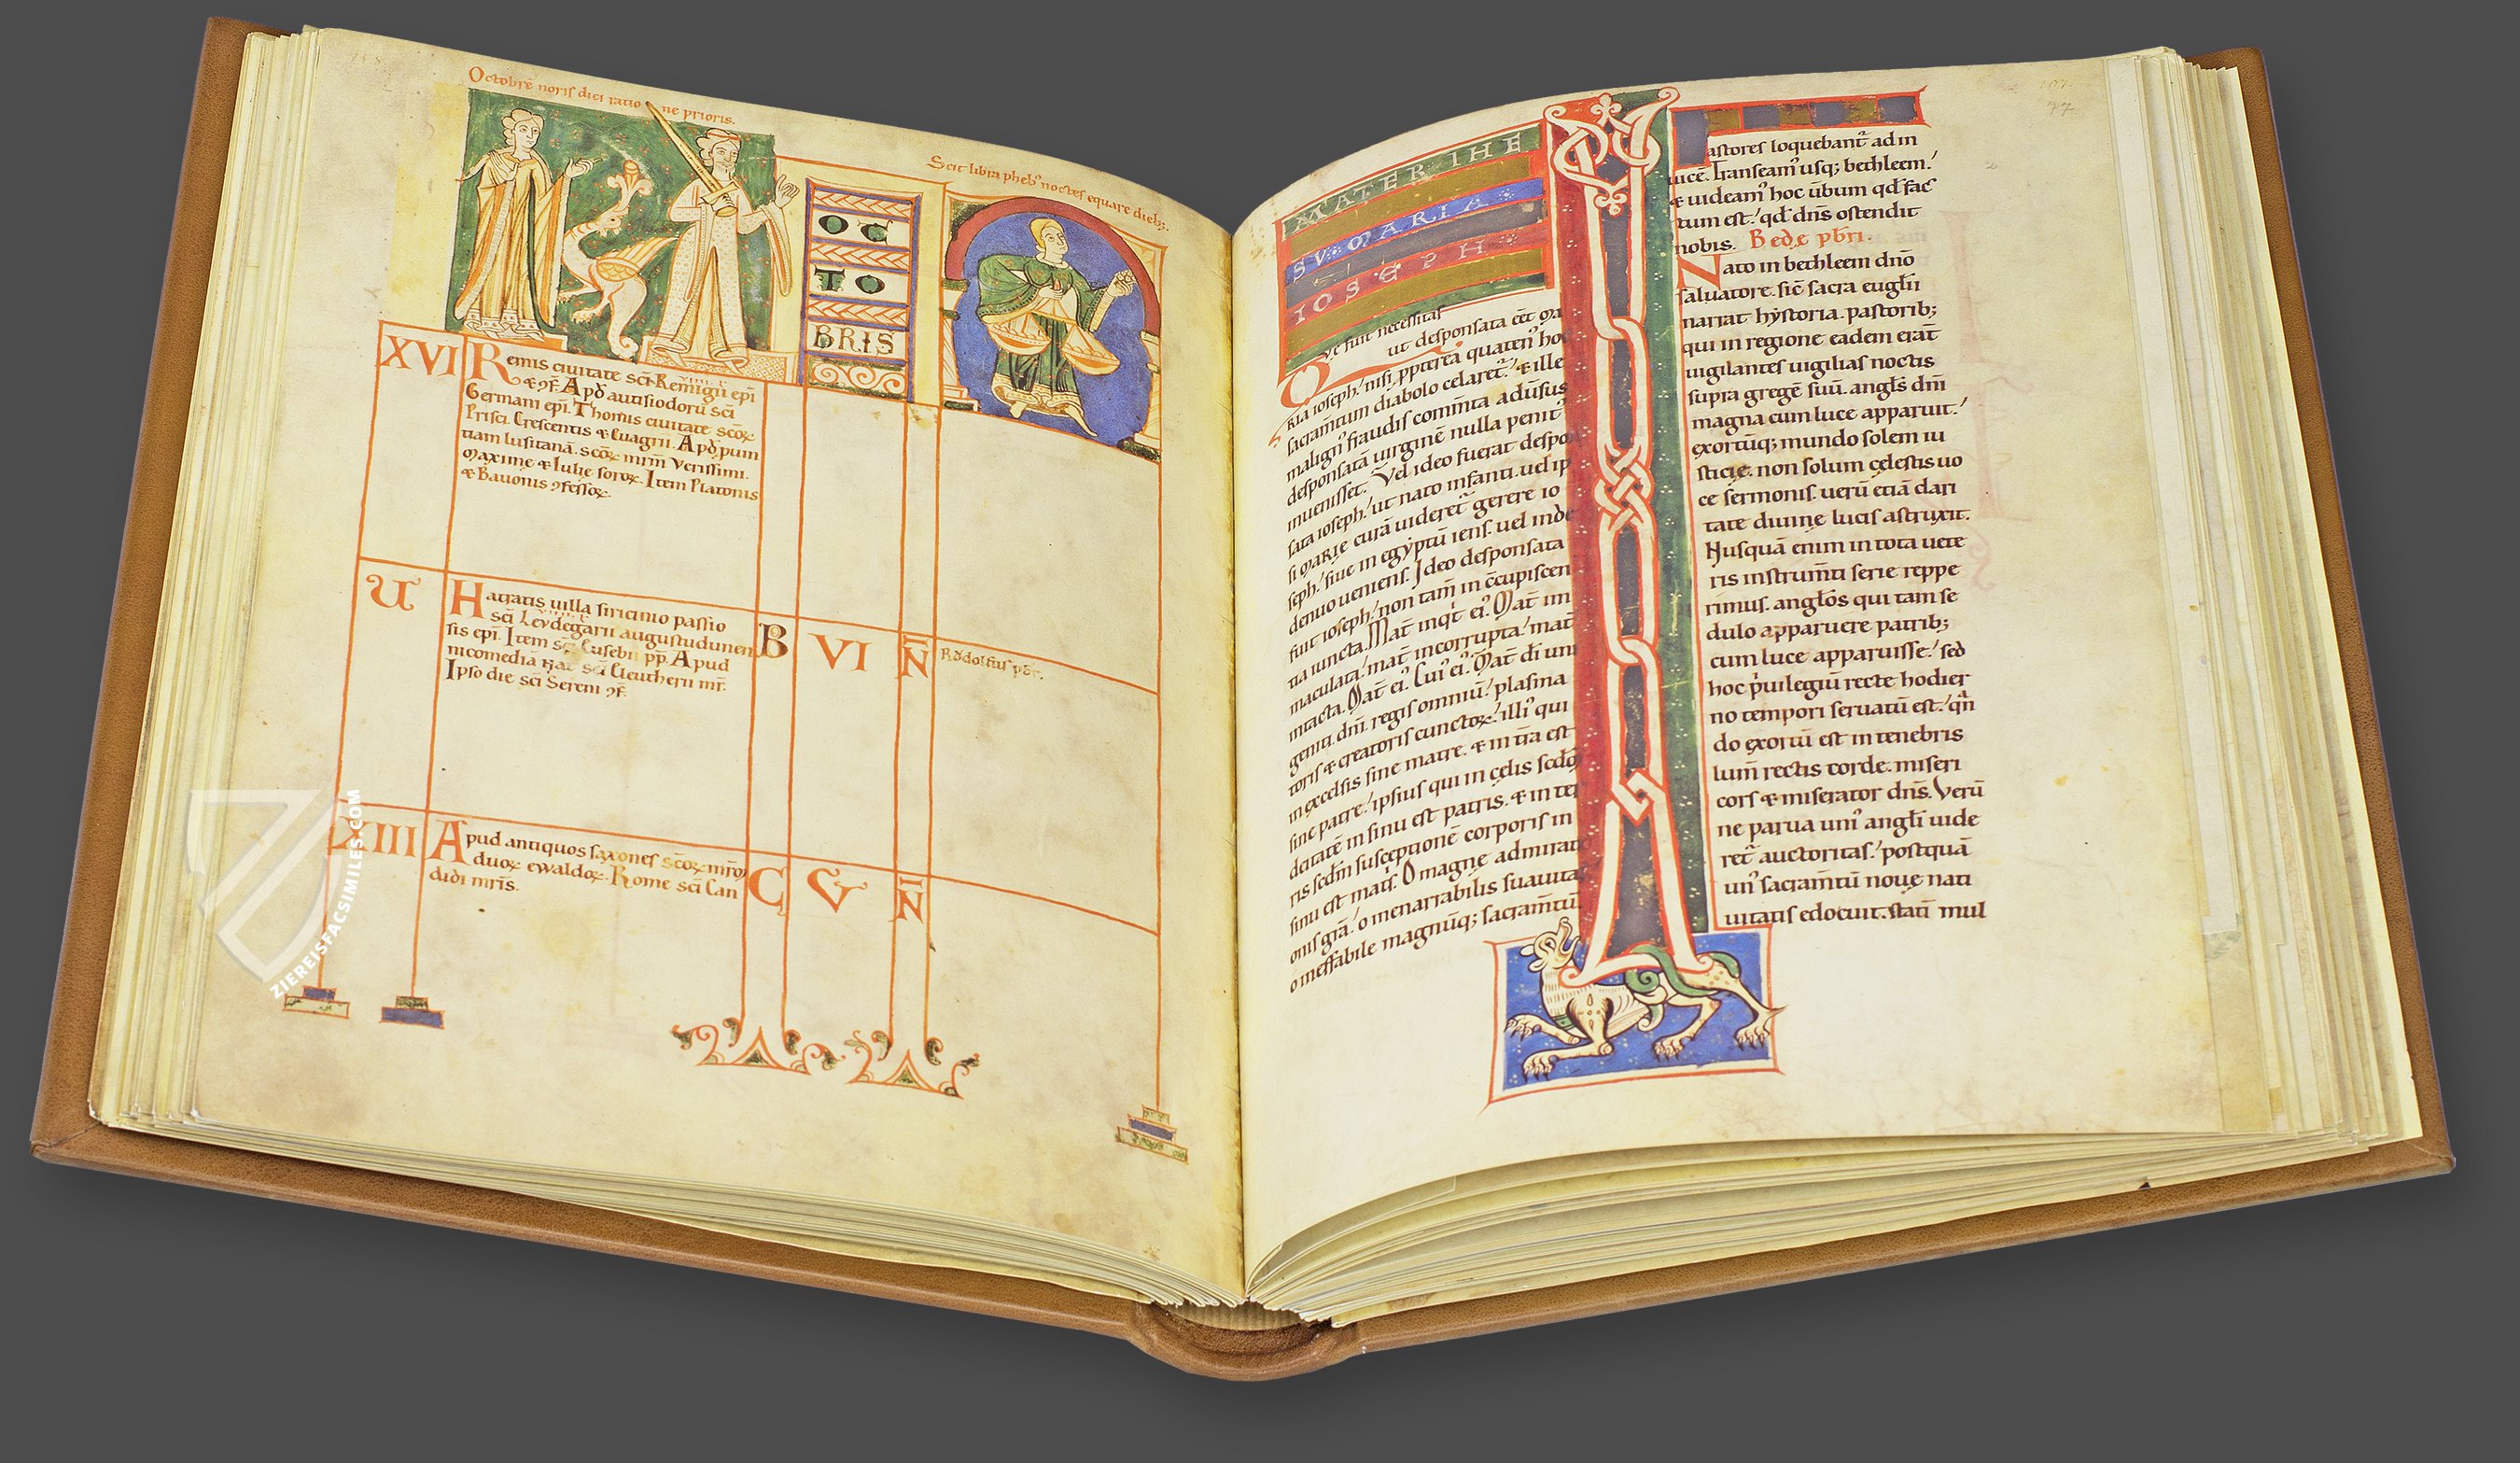 Octobrē noris dici ratio ne prioris.
Scit libra pheb⁹ noctes equare dieb;.
OC
TO
BRIS
XVI Remis ciuitate sc̄i Remigii ep̄i
Apd̄ autisiodorū sc̄i
Germani ep̄i. Thomis ciuitate scōꝝ
Prisci. Crescentis & Euagrii. Apd̄
tiam lusitanā. scōꝝ mr̄m Verissimi.
Maxime & Iulie soroꝝ. Item Platonis
& Bauonis ꝯfessoꝝ.
U Hatratis uilla siricinio passio
sc̄i Leudegarii augustudunen
sis ep̄i. Item sc̄i Eusebii pp̄. Apud
nicomediā sc̄i Eleutherii mr̄.
Ipso die sc̄i Sereni ꝯf.
B VI N̄
XIII Apud antiquos saxones scōꝝ mr̄oꝝ
duoꝝ ewaldoꝝ. Rome sc̄i Can
didi mr̄is.
C V N̄
ZIEREISFACSIMILES.COM
MATER IHE
SV. MARIA
IOSEPH
Que fuit necessitas
ut desponsata eēt ma
ria ioseph.' nisi ꝓpterea quaten⁹ hoc
sacram̄tum diabolo celaret᷑.' & ille
malign⁹ fraudis com̄ta adūsus
desponsatā uirginē nulla penit⁹
inuenisset. Vel ideo fuerat despon
sata ioseph.' ut nato infanti. uel ip
si marie curā uideret᷑ gerere io
seph.' siue in egyptū iens. uel inde
denuo ueniens. Ideo desponsata
fuit ioseph.' non tam̄ in c̄cupiscen
tia iuncta. Mat̄ inqt ei⁹. Mat̄ im
maculata.' mat̄ incorrupta.' mat̄
intacta. Mat̄ ei⁹. Cui⁹ ei⁹. Mat̄ dī uni
geniti. dn̄i. regis omniū.' plasma
toris & creatoris cunctoꝝ.' illi⁹ qui
in excelsis sine matre. & in t̄ra est
sine patre.' ipsius qui in celis scdō
deitatē in sinu est patris. & in ter
ris scdm̄ susceptionē corporis in
sinu est matis. O magne admirati
onis gr̄a.' o inenarrabilis suauitas
o ineffabile magnūq; sacram̄tū.
Pastores loquebant᷑ ad in
uicē. Transeam⁹ usq; bethleem.'
& uideam⁹ hoc ūbum qd̄ fac
tum est.' qd̄ dn̄s ostendit
nobis. Bede pb̄ri.
Nato in bethleem dn̄o
saluatore. sic̄ sacra euglii
narrat hystoria. pastorib;
qui in regione eadem erāt
uigilantes uigilias noctis
supra gregē suū. angl̄s dn̄i
magna cum luce apparuit.'
exortūq; mundo solem iu
sticie. non solum celestis uo
ce sermonis. uerū etiā clari
tate diuine lucis astruxit.
Nusquā enim in tota uete
ris instrum̄ti serie reppe
rimus. angl̄os qui tam se
dulo apparuere patrib;
cum luce apparuisse.' sed
hoc p̄uilegiū recte hodier
no tempori seruatū est.' qn̄
do exortū est in tenebris
lum̄ rectis corde. miseri
cors & miserator dn̄s. Verū
ne parua uni⁹ angl̄i uide
ret᷑ auctoritas.' postquā
un⁹ sacram̄tū noue nati
uitatis edocuit. statī mul